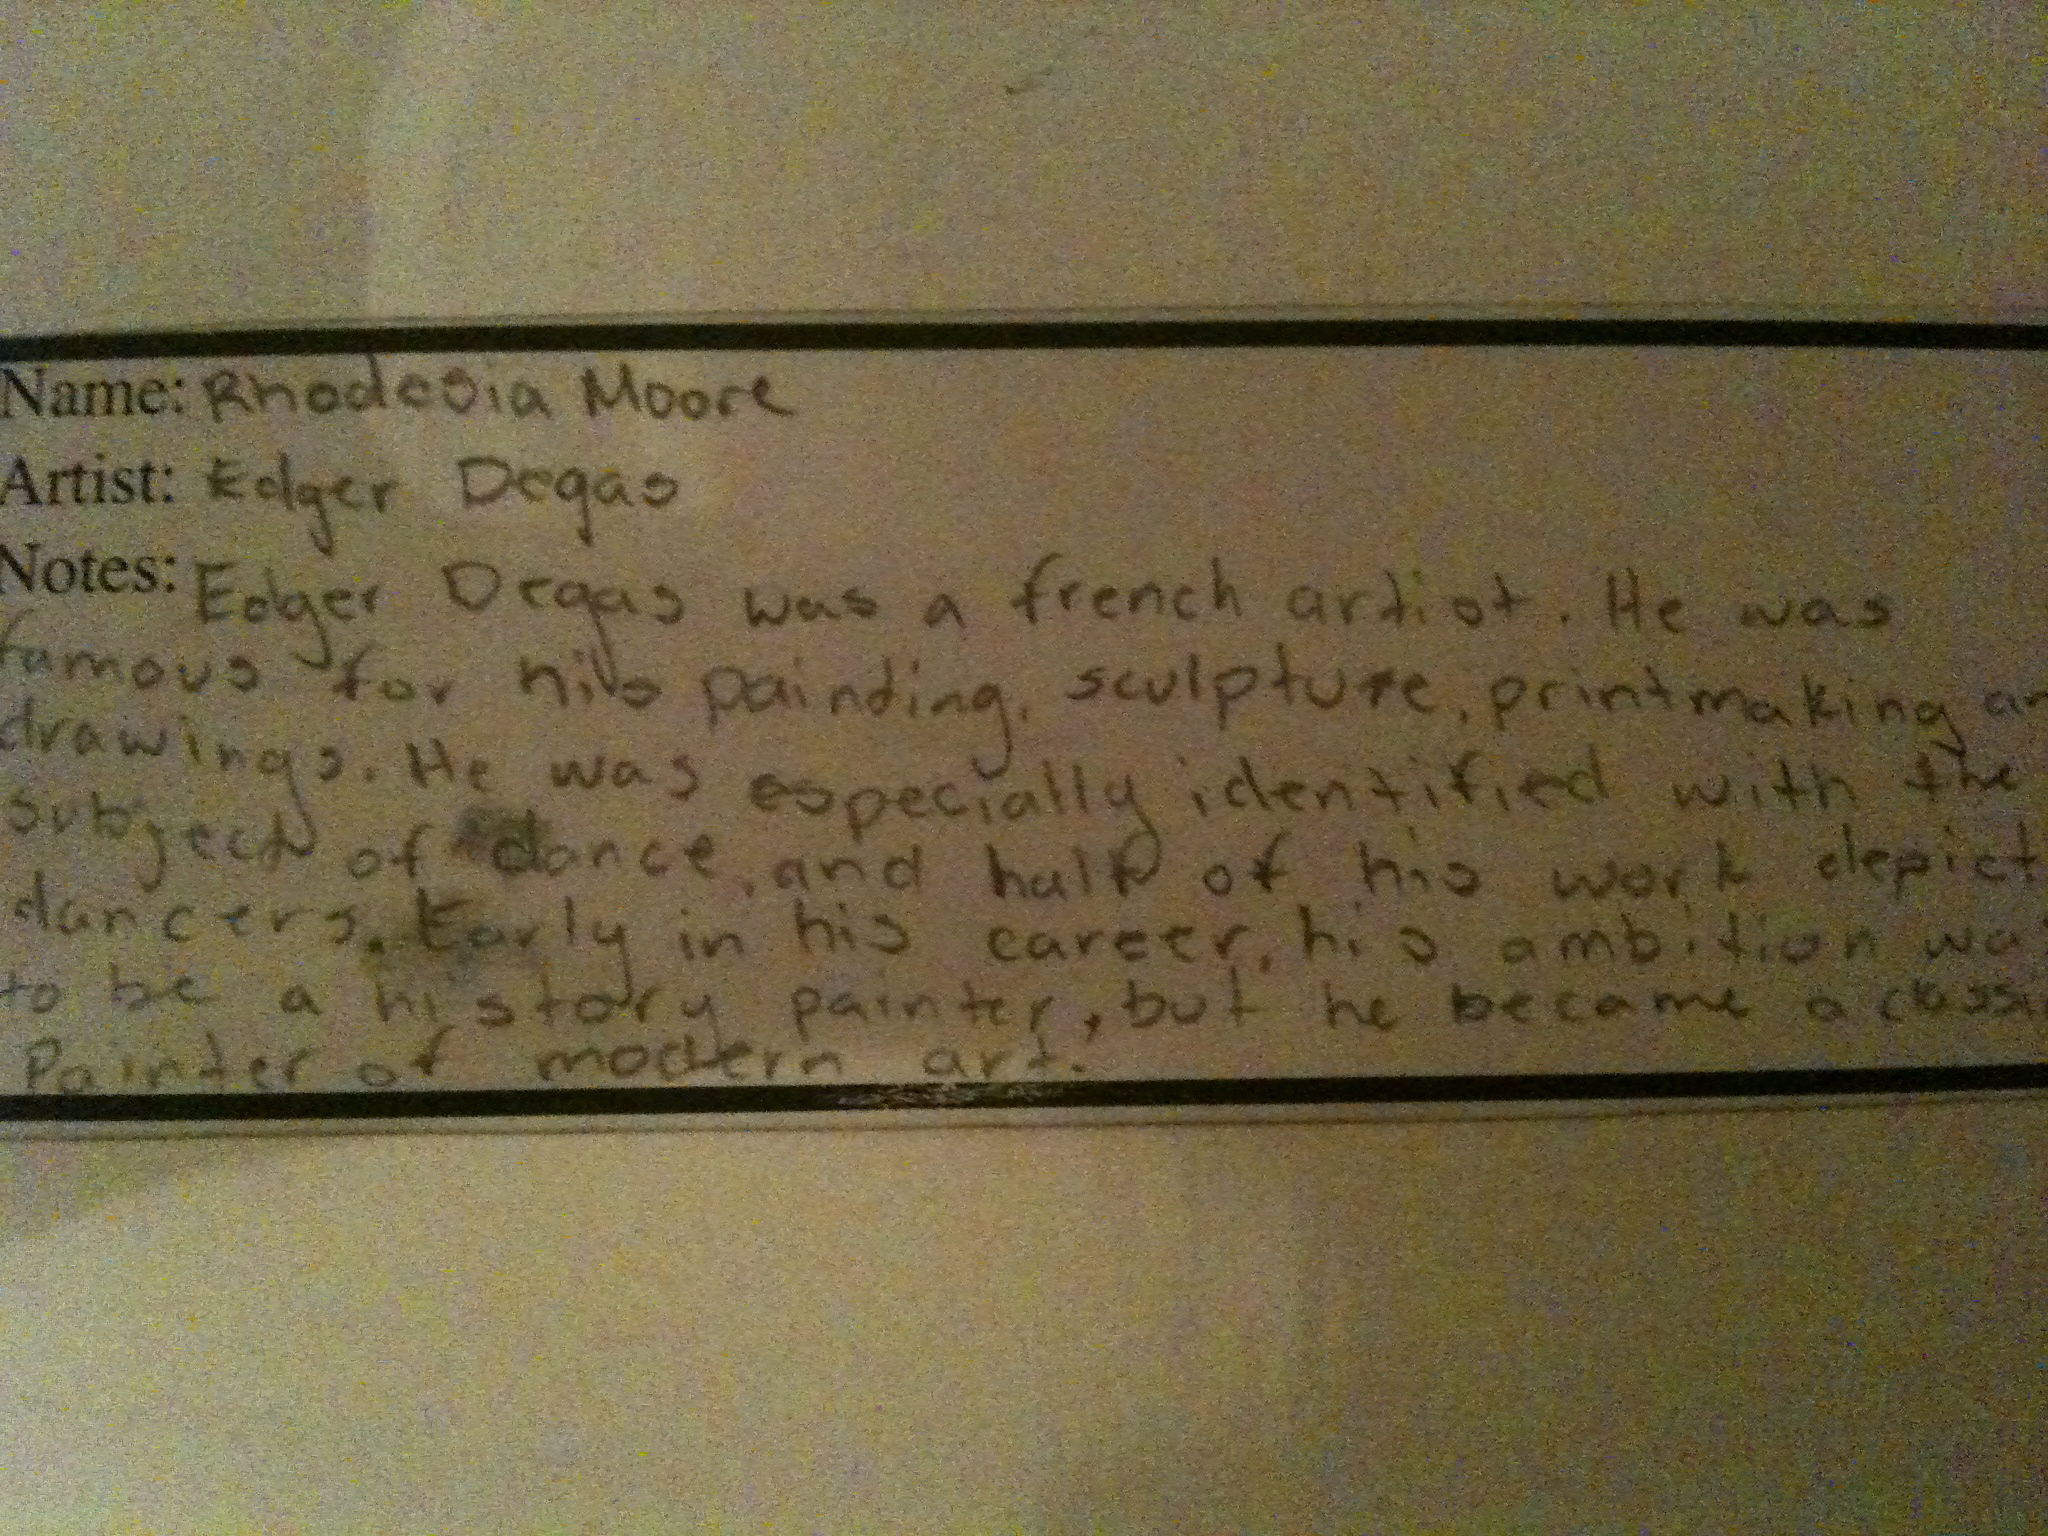 Name: Rhodesia Moore
Artist: Edger Degas
Notes: Edger Degas was a french artist. He was
famous for his painding, sculpture, printmaking an
drawings. He was especially identified with the
subject of dance, and half of his work depict
dancers. Early in his career, his ambition was
to be a history painter, but he became a classi
Painter of modern art.